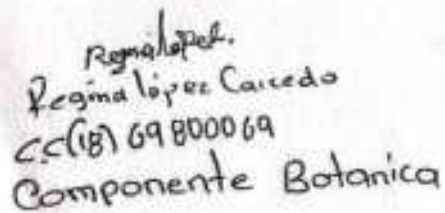 Regina lopez.
Regina lópez Caicedo
CC(18) 69800069
Componente Botanica